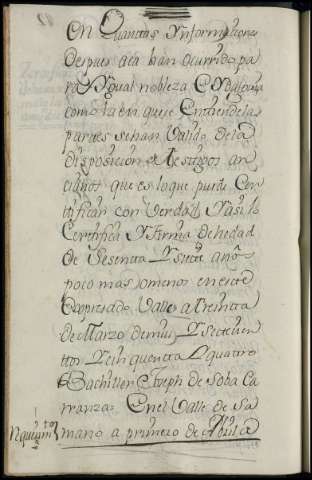 En quantas Ynformaciones
despues aca han ocurrido pa
ra Ygual nobleza e Ydalguia
como la en que se Entiende las
partes se han Valido de la
disposicion de testigos an
cianos que es lo que puede Cer
tificar con Verdad Y asi lo
Certifica Y firma de hedad
de Sesenta Y siete años
poco mas o menos en este
Expresado Valle a Treinta
de Marzo de mill Y Setecien
ttos Y Cinquenta Y quatro
Bachiller Joseph de Soba Ca
rranza En el Valle de Sa
mano a primero de Abril de